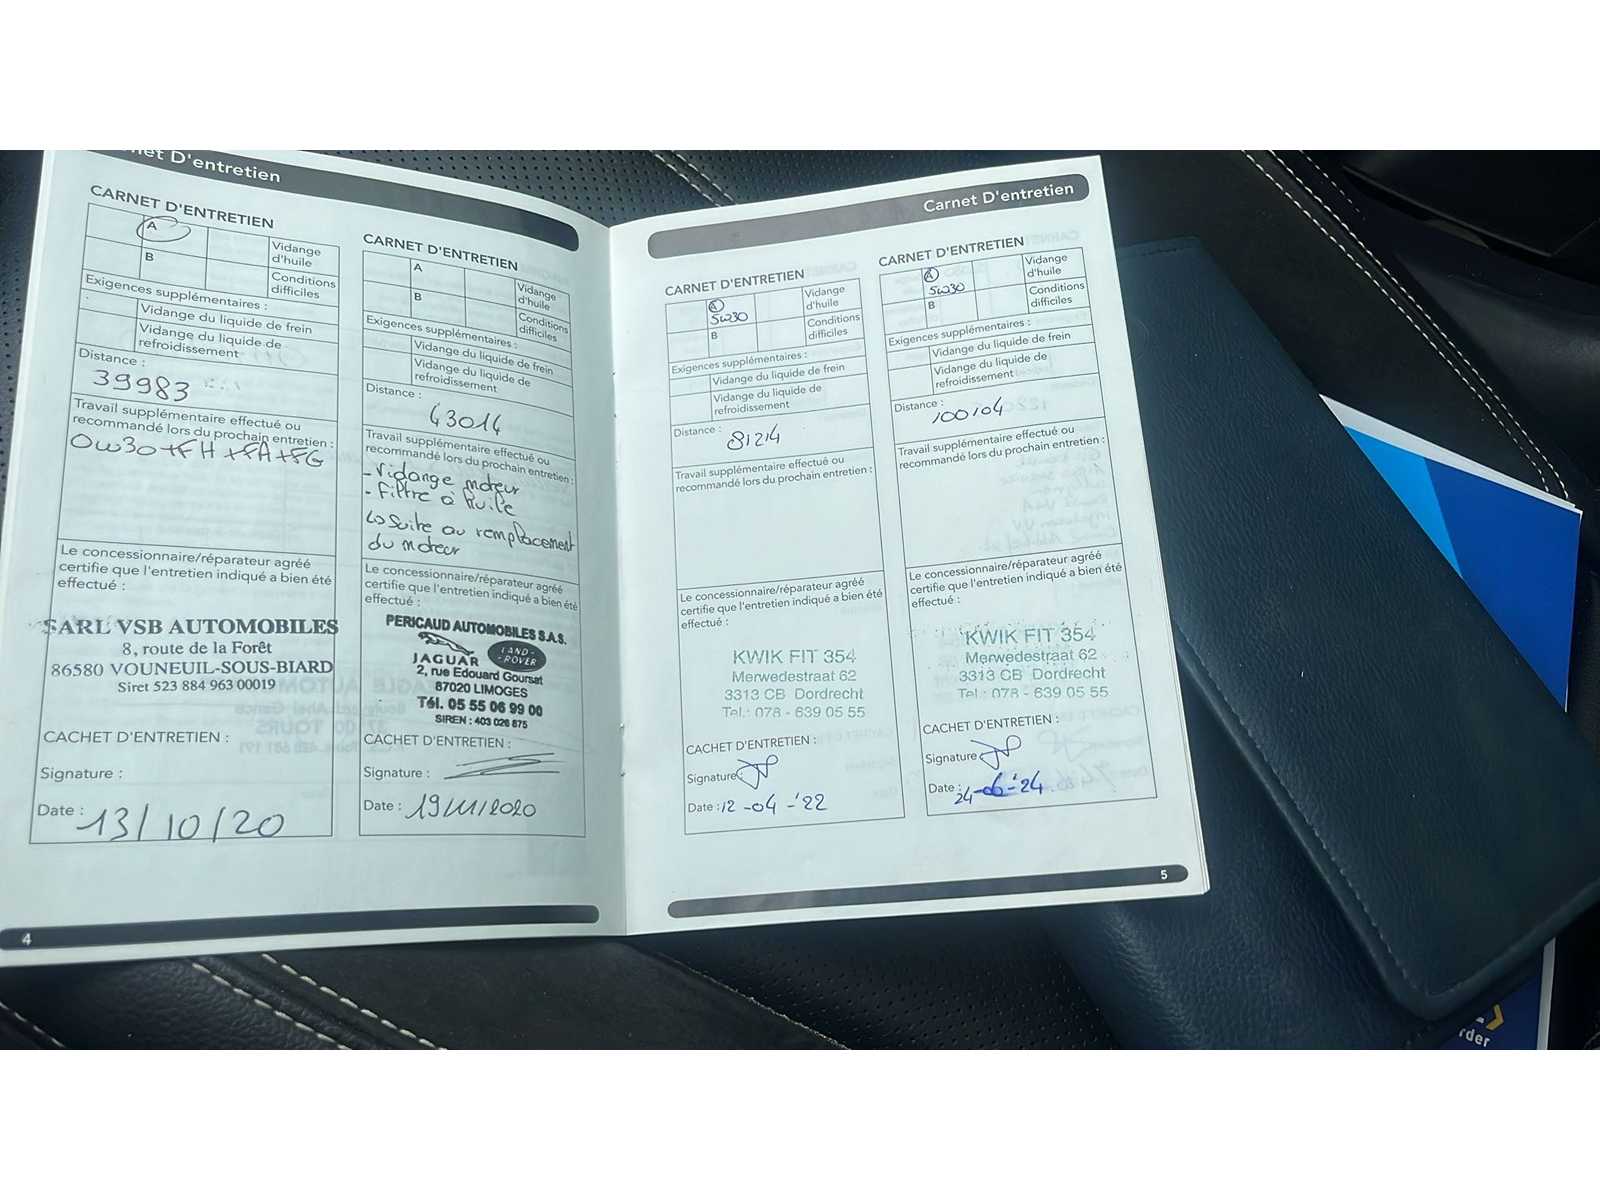 Carnet D'entretien
CARNET D'ENTRETIEN
A
Vidange d'huile
B
Conditions difficiles
Exigences supplémentaires :
Vidange du liquide de frein
Vidange du liquide de
refroidissement
Distance :
39983
Travail supplémentaire effectué ou
recommandé lors du prochain entretien :
0w30+FH+FA+FG
Le concessionnaire/réparateur agréé
certifie que l'entretien indiqué a bien été
effectué :
SARL VSB AUTOMOBILES
8, route de la Forêt
86580 VOUNEUIL-SOUS-BIARD
Siret 523 884 963 00019
CACHET D'ENTRETIEN :
Signature :
Date :
13/10/20
4
CARNET D'ENTRETIEN
A
Vidange
d'huile
B
Conditions
difficiles
Exigences supplémentaires :
Vidange du liquide de frein
Vidange du liquide de
refroidissement
Distance :
43014
Travail supplémentaire effectué ou
recommandé lors du prochain entretien :
- Vidange moteur
- Filtre à huile
↳ suite au remplacement
du moteur
Le concessionnaire/réparateur agréé
certifie que l'entretien indiqué a bien été
effectué :
PERICAUD AUTOMOBILES S.A.S.
JAGUAR
LAND-
ROVER
2, rue Edouard Goursat
87020 LIMOGES
Tél. 05 55 06 99 00
SIREN : 403 026 875
CACHET D'ENTRETIEN :
Signature :
Date : 19/11/2020
Carnet D'entretien
CARNET D'ENTRETIEN
A
5w30
Vidange
d'huile
B
Conditions
difficiles
Exigences supplémentaires :
Vidange du liquide de frein
Vidange du liquide de
refroidissement
Distance :
81214
Travail supplémentaire effectué ou
recommandé lors du prochain entretien :
Le concessionnaire/réparateur agréé
certifie que l'entretien indiqué a bien été
effectué :
KWIK FIT 354
Merwedestraat 62
3313 CB Dordrecht
Tel.: 078 - 639 05 55
CACHET D'ENTRETIEN :
Signature :
Date : 12-04-'22
CARNET D'ENTRETIEN
A
5w30
Vidange
d'huile
B
Conditions
difficiles
Exigences supplémentaires :
Vidange du liquide de frein
Vidange du liquide de
refroidissement
Distance :
100104
Travail supplémentaire effectué ou
recommandé lors du prochain entretien :
Le concessionnaire/réparateur agréé
certifie que l'entretien indiqué a bien été
effectué :
KWIK FIT 354
Merwedestraat 62
3313 CB Dordrecht
Tel.: 078 - 639 05 55
CACHET D'ENTRETIEN :
Signature
Date :
24-06-'24
5